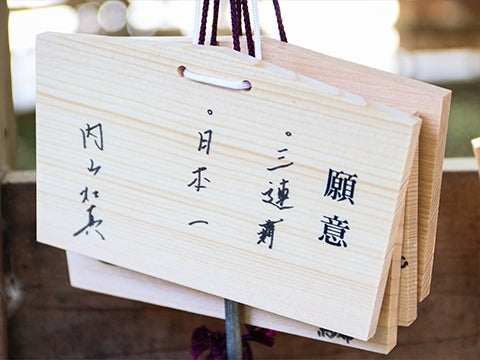 願意
。三連覇
。日本一
内山壮真